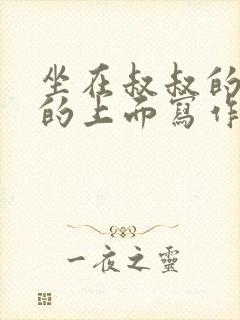 坐在叔叔的
的上而寫作
一夜之靈